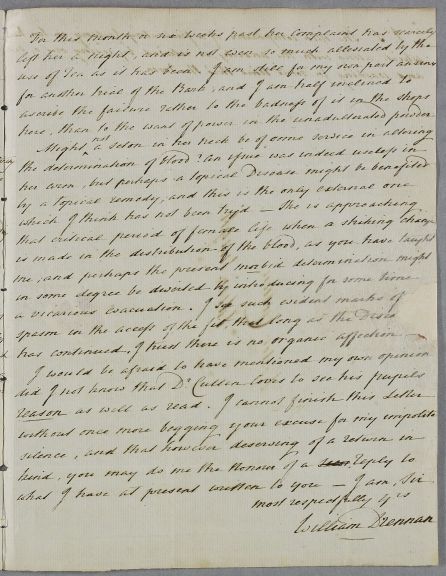 For this month or six weeks past her complaint has scarcely
left her a night, and is not even so much alleviated by the
use of Tea as it has been. I am also for my own part anxious
for another trial of the Bark, and I am half inclined to
ascribe the failure rather to the badness of it in the shops
here, than to the want of power in the unadulterated powder.
Might a seton in her neck be of some service in altering
the determination of blood? an issue was indeed useless in
her arm, but perhaps a topical Disease might be benefited
by a topical remedy, and this is the only external one
which I think has not been try'd — She is approaching
that critical period of female life when a striking change
is made in the distribution of the blood, as you have taught
me, and perhaps the present morbid determination might
in some degree be diverted by introducing for some time
a vicarious evacuation. I see such evident marks of
spasm in the access of the fit, that long as the Disease
has continued, I trust there is no organic affection —
I would be afraid to have mentioned my own opinion
did I not know that Dr. Cullen loves to see his pupils
reason as well as read. I cannot finish this Letter
without once more begging your excuse for my impolite
silence, and that however deserving of a return in
kind, you may do me the Honour of a reply to
what I have at present written to you — I am, Sir
most respectfully y
William Drennan